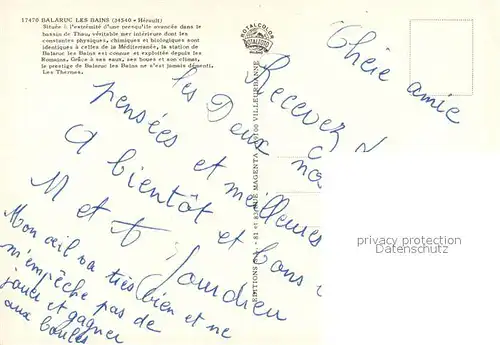 17470 BALARUC LES BAINS (34540 - Hérault)
Située à l'extrémité d'une presqu'île avancée dans le
bassin de Thau, véritable mer intérieure dont les
constantes physiques, chimiques et biologiques sont
identiques à celles de la Méditerranée, la station de
Balaruc les Bains est connue et exploitée depuis les
Romains. Grâce à ses eaux, ses boues et son climat,
le prestige de Balaruc les Bains ne s'est jamais démenti.
Les Thermes.
ROYALCOLOR
Chère amie
Recevez
les Deux
pensées et meilleures
A bientôt et bons
M et
Jourdren
Mon œil va très bien et ne
m'empêche pas de
jouer et gagner
aux boules
81 et 83 RUE MAGENTA 69100 VILLEURBANNE
privacy protection
Datenschutz